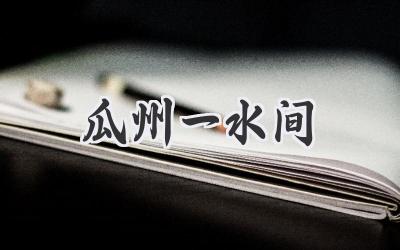 瓜州一水间